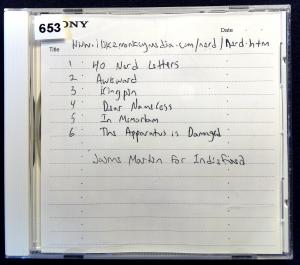 653
SONY
Date
Title www.ilikemonkeysmedia.com/nerd/nerd.htm
1 40 Nerd Letters
2 Awkward
3 Kingpin
4 Dear Nameless
5 In Memoriam
6 The Apparatus is Damaged
James Martin for Indiefeed